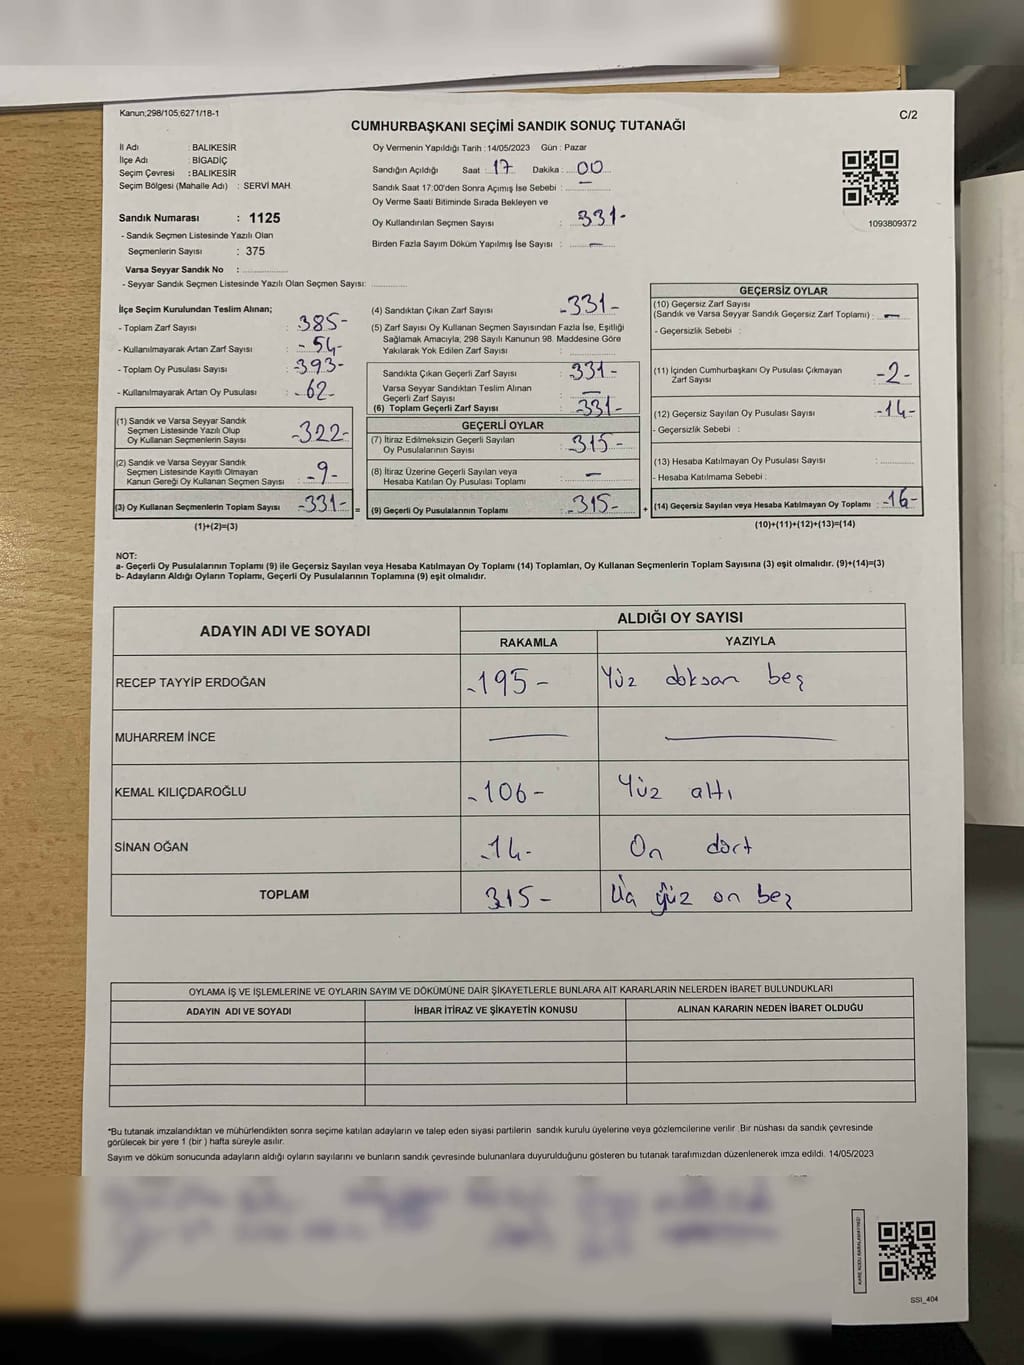 Kanun;298/105;6271/18-1
C/2
CUMHURBAŞKANI SEÇİMİ SANDIK SONUÇ TUTANAĞI
İl Adı : BALIKESİR
İlçe Adı : BİGADİÇ
Seçim Çevresi : BALIKESİR
Seçim Bölgesi (Mahalle Adı) : SERVİ MAH.
Sandık Numarası : 1125
- Sandık Seçmen Listesinde Yazılı Olan
Seçmenlerin Sayısı : 375
Varsa Seyyar Sandık No :
- Seyyar Sandık Seçmen Listesinde Yazılı Olan Seçmen Sayısı:
Oy Vermenin Yapıldığı Tarih : 14/05/2023 Gün : Pazar
Sandığın Açıldığı Saat : 17 Dakika : 00
Sandık Saat 17:00'den Sonra Açımış İse Sebebi : —
Oy Verme Saati Bitiminde Sırada Bekleyen ve
Oy Kullandırılan Seçmen Sayısı : 331-
Birden Fazla Sayım Döküm Yapılmış İse Sayısı : —
1093809372
İlçe Seçim Kurulundan Teslim Alınan;
- Toplam Zarf Sayısı : 385-
- Kullanılmayarak Artan Zarf Sayısı : -54-
- Toplam Oy Pusulası Sayısı : -393-
- Kullanılmayarak Artan Oy Pusulası : -62-
(1) Sandık ve Varsa Seyyar Sandık
Seçmen Listesinde Yazılı Olup
Oy Kullanan Seçmenlerin Sayısı -322-
(2) Sandık ve Varsa Seyyar Sandık
Seçmen Listesinde Kayıtlı Olmayan
Kanun Gereği Oy Kullanan Seçmen Sayısı : -9-
(3) Oy Kullanan Seçmenlerin Toplam Sayısı -331-
(1)+(2)=(3)
(4) Sandıktan Çıkan Zarf Sayısı -331-
(5) Zarf Sayısı Oy Kullanan Seçmen Sayısından Fazla İse, Eşitliği
Sağlamak Amacıyla, 298 Sayılı Kanunun 98. Maddesine Göre
Yakılarak Yok Edilen Zarf Sayısı :
Sandıkta Çıkan Geçerli Zarf Sayısı : 331-
Varsa Seyyar Sandıktan Teslim Alınan
Geçerli Zarf Sayısı : —
(6) Toplam Geçerli Zarf Sayısı : -331-
GEÇERLİ OYLAR
(7) İtiraz Edilmeksizin Geçerli Sayılan
Oy Pusulalarının Sayısı : -315-
(8) İtiraz Üzerine Geçerli Sayılan veya
Hesaba Katılan Oy Pusulası Toplamı : —
= (9) Geçerli Oy Pusulalarının Toplamı : -315-
GEÇERSİZ OYLAR
(10) Geçersiz Zarf Sayısı
(Sandık ve Varsa Seyyar Sandık Geçersiz Zarf Toplamı) : —
- Geçersizlik Sebebi :
(11) İçinden Cumhurbaşkanı Oy Pusulası Çıkmayan
Zarf Sayısı -2-
(12) Geçersiz Sayılan Oy Pusulası Sayısı -14-
- Geçersizlik Sebebi :
(13) Hesaba Katılmayan Oy Pusulası Sayısı :
- Hesaba Katılmama Sebebi :
+ (14) Geçersiz Sayılan veya Hesaba Katılmayan Oy Toplamı : -16-
(10)+(11)+(12)+(13)=(14)
NOT:
a- Geçerli Oy Pusulalarının Toplamı (9) ile Geçersiz Sayılan veya Hesaba Katılmayan Oy Toplamı (14) Toplamları, Oy Kullanan Seçmenlerin Toplam Sayısına (3) eşit olmalıdır. (9)+(14)=(3)
b- Adayların Aldığı Oyların Toplamı, Geçerli Oy Pusulalarının Toplamına (9) eşit olmalıdır.
ADAYIN ADI VE SOYADI ALDIĞI OY SAYISI
RAKAMLA YAZIYLA
RECEP TAYYİP ERDOĞAN -195- Yüz doksan beş
MUHARREM İNCE — —
KEMAL KILIÇDAROĞLU -106- Yüz altı
SİNAN OĞAN -14- On dört
TOPLAM 315- Üç yüz on beş
OYLAMA İŞ VE İŞLEMLERİNE VE OYLARIN SAYIM VE DÖKÜMÜNE DAİR ŞİKAYETLERLE BUNLARA AİT KARARLARIN NELERDEN İBARET BULUNDUKLARI
ADAYIN ADI VE SOYADI İHBAR İTİRAZ VE ŞİKAYETİN KONUSU ALINAN KARARIN NEDEN İBARET OLDUĞU
*Bu tutanak imzalandıktan ve mühürlendikten sonra seçime katılan adayların ve talep eden siyasi partilerin sandık kurulu üyelerine veya gözlemcilerine verilir. Bir nüshası da sandık çevresinde
görülecek bir yere 1 (bir ) hafta süreyle asılır.
Sayım ve döküm sonucunda adayların aldığı oyların sayılarını ve bunların sandık çevresinde bulunanlara duyurulduğunu gösteren bu tutanak tarafımızdan düzenlenerek imza edildi. 14/05/2023
SSI_404